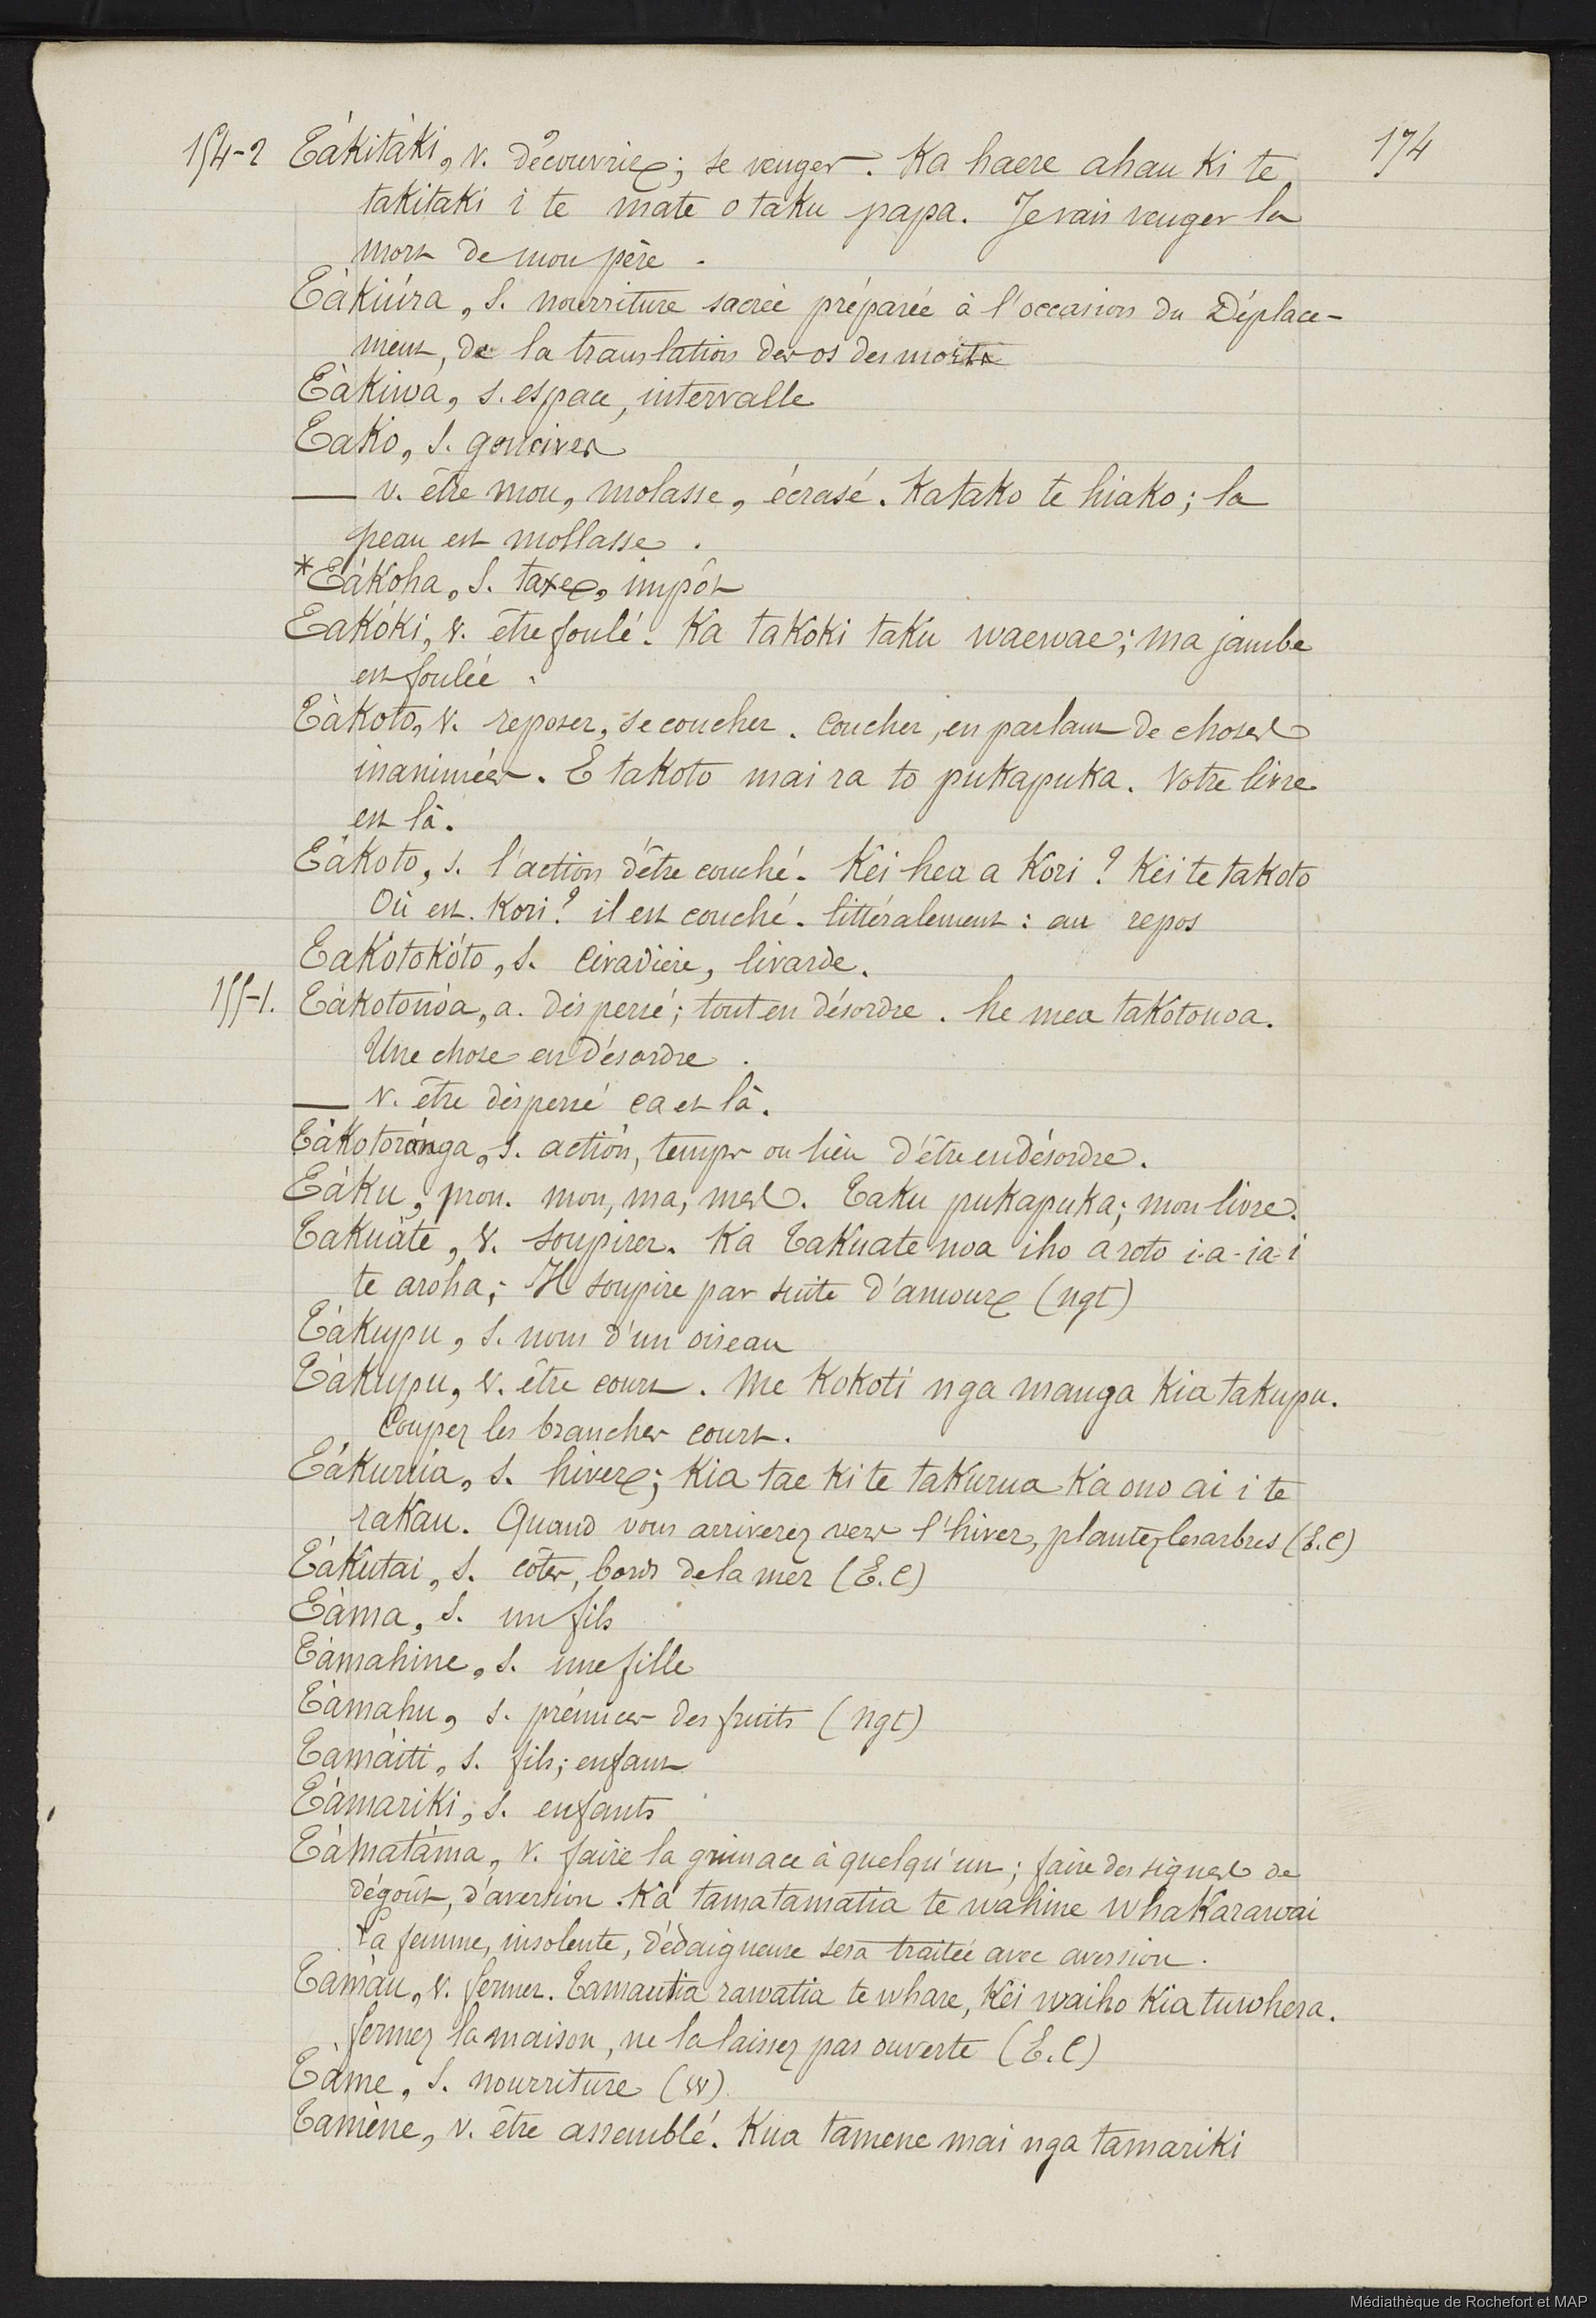 154-2 Tákitáki, v. découvrir; se venger. Ka haere ahau ki te 174
takitaki i te mate o taku papa. Je vais venger la
mort de mon père.
Tàkiúra, s. nourriture sacrée préparée à l'occasion du Déplace-
ment, de la translation des os des morts
Tàkiwa, s. espace, intervalle
Tako, s. gencives
— v. être mou, molasse, écrasé. Ka tako te hiako; la
peau est mollasse.
*Tákoha, s. taxe, impôt
Takóki, v. être foulé. Ka takoki taku waewae; ma jambe
est foulée.
Tàkoto, v. reposer, se coucher. Coucher, en parlant de choses
inanimées. E takoto mai ra to pukapuka. Votre livre
est là.
Tákoto, s. l'action d'être couché. Kei hea a Kori? Kei te takoto
Où est Kori? il est couché. littéralement: au repos
Takótokóto, s. Civadière, livarde.
155-1. Tàkotonóa, a. dispersé; tout en désordre. he mea takotonoa.
Une chose en désordre.
— v. être dispersé ça et là.
Tàkotoránga, s. action, temps ou lieu d'être en désordre.
Táku, pron. mon, ma, mes. Taku pukapuka; mon livre.
Takuáte, v. soupirer. Ka Takuate noa iho a roto i-a-ia-i
te aroha; Il soupire par suite d'amour (ngt)
Tákupu, s. nom d'un oiseau
Tàkupu, v. être court. Me Kokoti nga manga Kia takupu.
Coupez les branches court.
Tákurúa, s. hiver; Kia tae ki te takurua Ka ono ai i te
rakau. Quand vous arriverez vers l'hiver, plantez les arbres (E.C)
Tákutai, s. côtes, bords de la mer (E.C)
Tàma, s. un fils
Tàmahine, s. une fille
Tàmahu, s. prémices des fruits (ngt)
Tamáiti, s. fils; enfant
Támariki, s. enfants
Támatáma, v. faire la grimace à quelqu'un; faire des signes de
dégoût, d'aversion. Ka tamatamatia te wahine whakarawai
La femme, insolente, dédaigneuse sera traitée avec aversion.
Tamàu, v. fermer. Tamautia rawatia te whare, Kei waiho Kia tuwhera.
fermez la maison, ne la laissez pas ouverte (E.C)
Tàme, s. nourriture (W)
Tamène, v. être assemblé. Kua tamene mai nga tamariki
Médiathèque de Rochefort et MAP